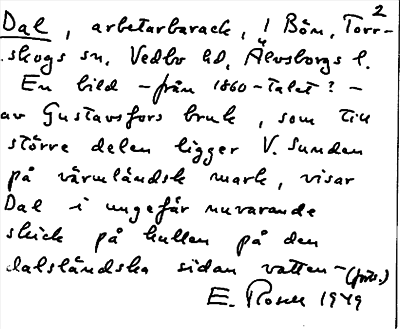 2
Dal, arbetarbarack, i Bön, Torr-
skogs sn, Vedbo hd, Älvsborgs l.
En bild - från 1860-talet? -
av Gustavsfors bruk, som till
större delen ligger V. sunden
på värmländsk mark, visar
Dal i ungefär nuvarande
skick på kullen på den
dalsländska sidan vatten- (forts.)
E. Rosen 1949